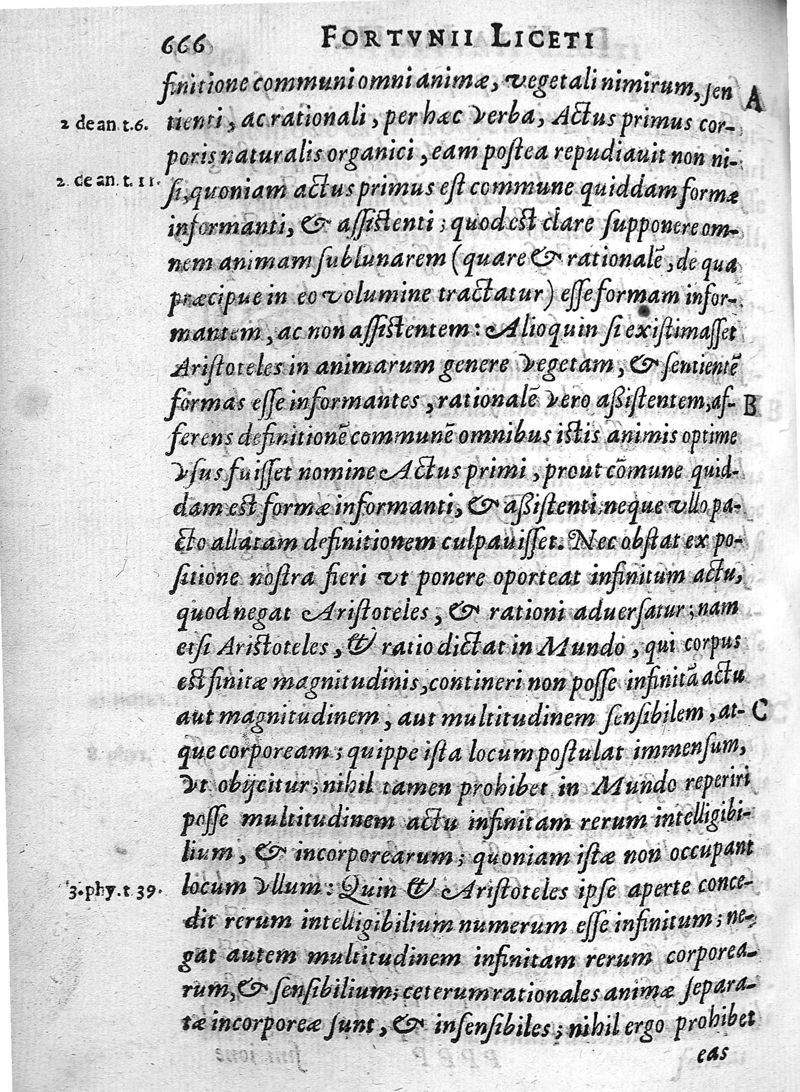 666 FORTVNII LICETI
finitione communi omni animæ, vegetali nimirum, sen A
2 de an. t. 6. tienti, ac rationali, per hæc verba, Actus primus cor-
poris naturalis organici, eam postea repudiauit non ni-
2. de an. t. 11. si, quoniam actus primus est commune quiddam formæ
informanti, & assistenti; quod est clare supponere om-
nem animam sublunarem (quare & rationalē, de qua
præcipue in eo volumine tractatur) esse formam infor-
mantem, ac non assistentem: Alioquin si existimasset
Aristoteles in animarum genere vegetam, & sentientē
formas esse informantes, rationalē vero assistentem, af- B
ferens definitionē communē omnibus istis animis optime
vsus fuisset nomine Actus primi, prout cōmune quid-
dam est formæ informanti, & assistenti; neque vllo pa-
cto allatam definitionem culpauisset. Nec obstat ex po-
sitione nostra fieri vt ponere oporteat infinitum actu,
quod negat Aristoteles, & rationi aduersatur; nam
etsi Aristoteles, & ratio dictat in Mundo, qui corpus
est finitæ magnitudinis, contineri non posse infinitā actu
aut magnitudinem, aut multitudinem sensibilem, at- C
que corpoream; quippe ista locum postulat immensum,
vt obijcitur; nihil tamen prohibet in Mundo reperiri
posse multitudinem actu infinitam rerum intelligibi-
lium, & incorporearum; quoniam istæ non occupant
3. phy. t 39. locum vllum: Quin & Aristoteles ipse aperte conce-
dit rerum intelligibilium numerum esse infinitum; ne-
gat autem multitudinem infinitam rerum corporea-
rum, & sensibilium; ceterum rationales animæ separa-
tæ incorporeæ sunt, & insensibiles; nihil ergo prohibet
eas